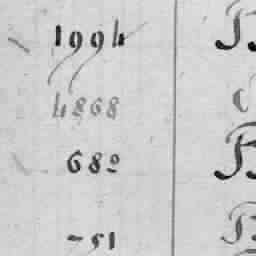 1994
4868
680
-51